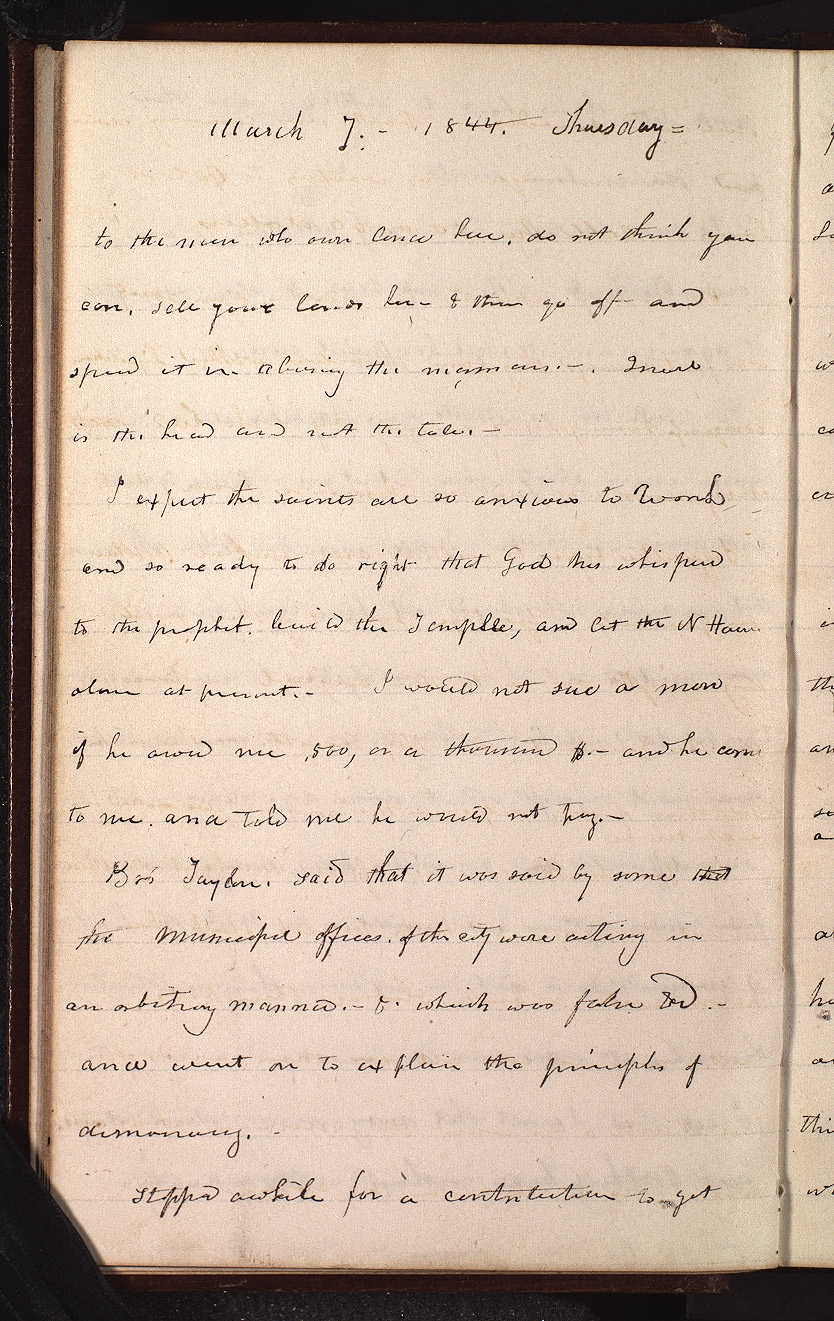 March 7.- 1844. Thursday=
to the men who own land here. do not think you
can. sell your lands here & then go off and
spend it in abusing the mormons.-.
is the head and not the tale.-
I expect the saints are so anxious to work
and so ready to do right that God has whisperd
to the prophet. build the Temple, and let the N House
alone at present.- I would not sue a man
if he owed me ,500, or a thousand $.- and he come
to me. and told me he would not pay.-
Bro Taylor. said that it was said by some that
the Municipal officers. of the city were acting in
an arbitray manner.- &. which was false &c .-
and went on to explain the principles of
democracy.-
Stoppd awhile for a contribution to get